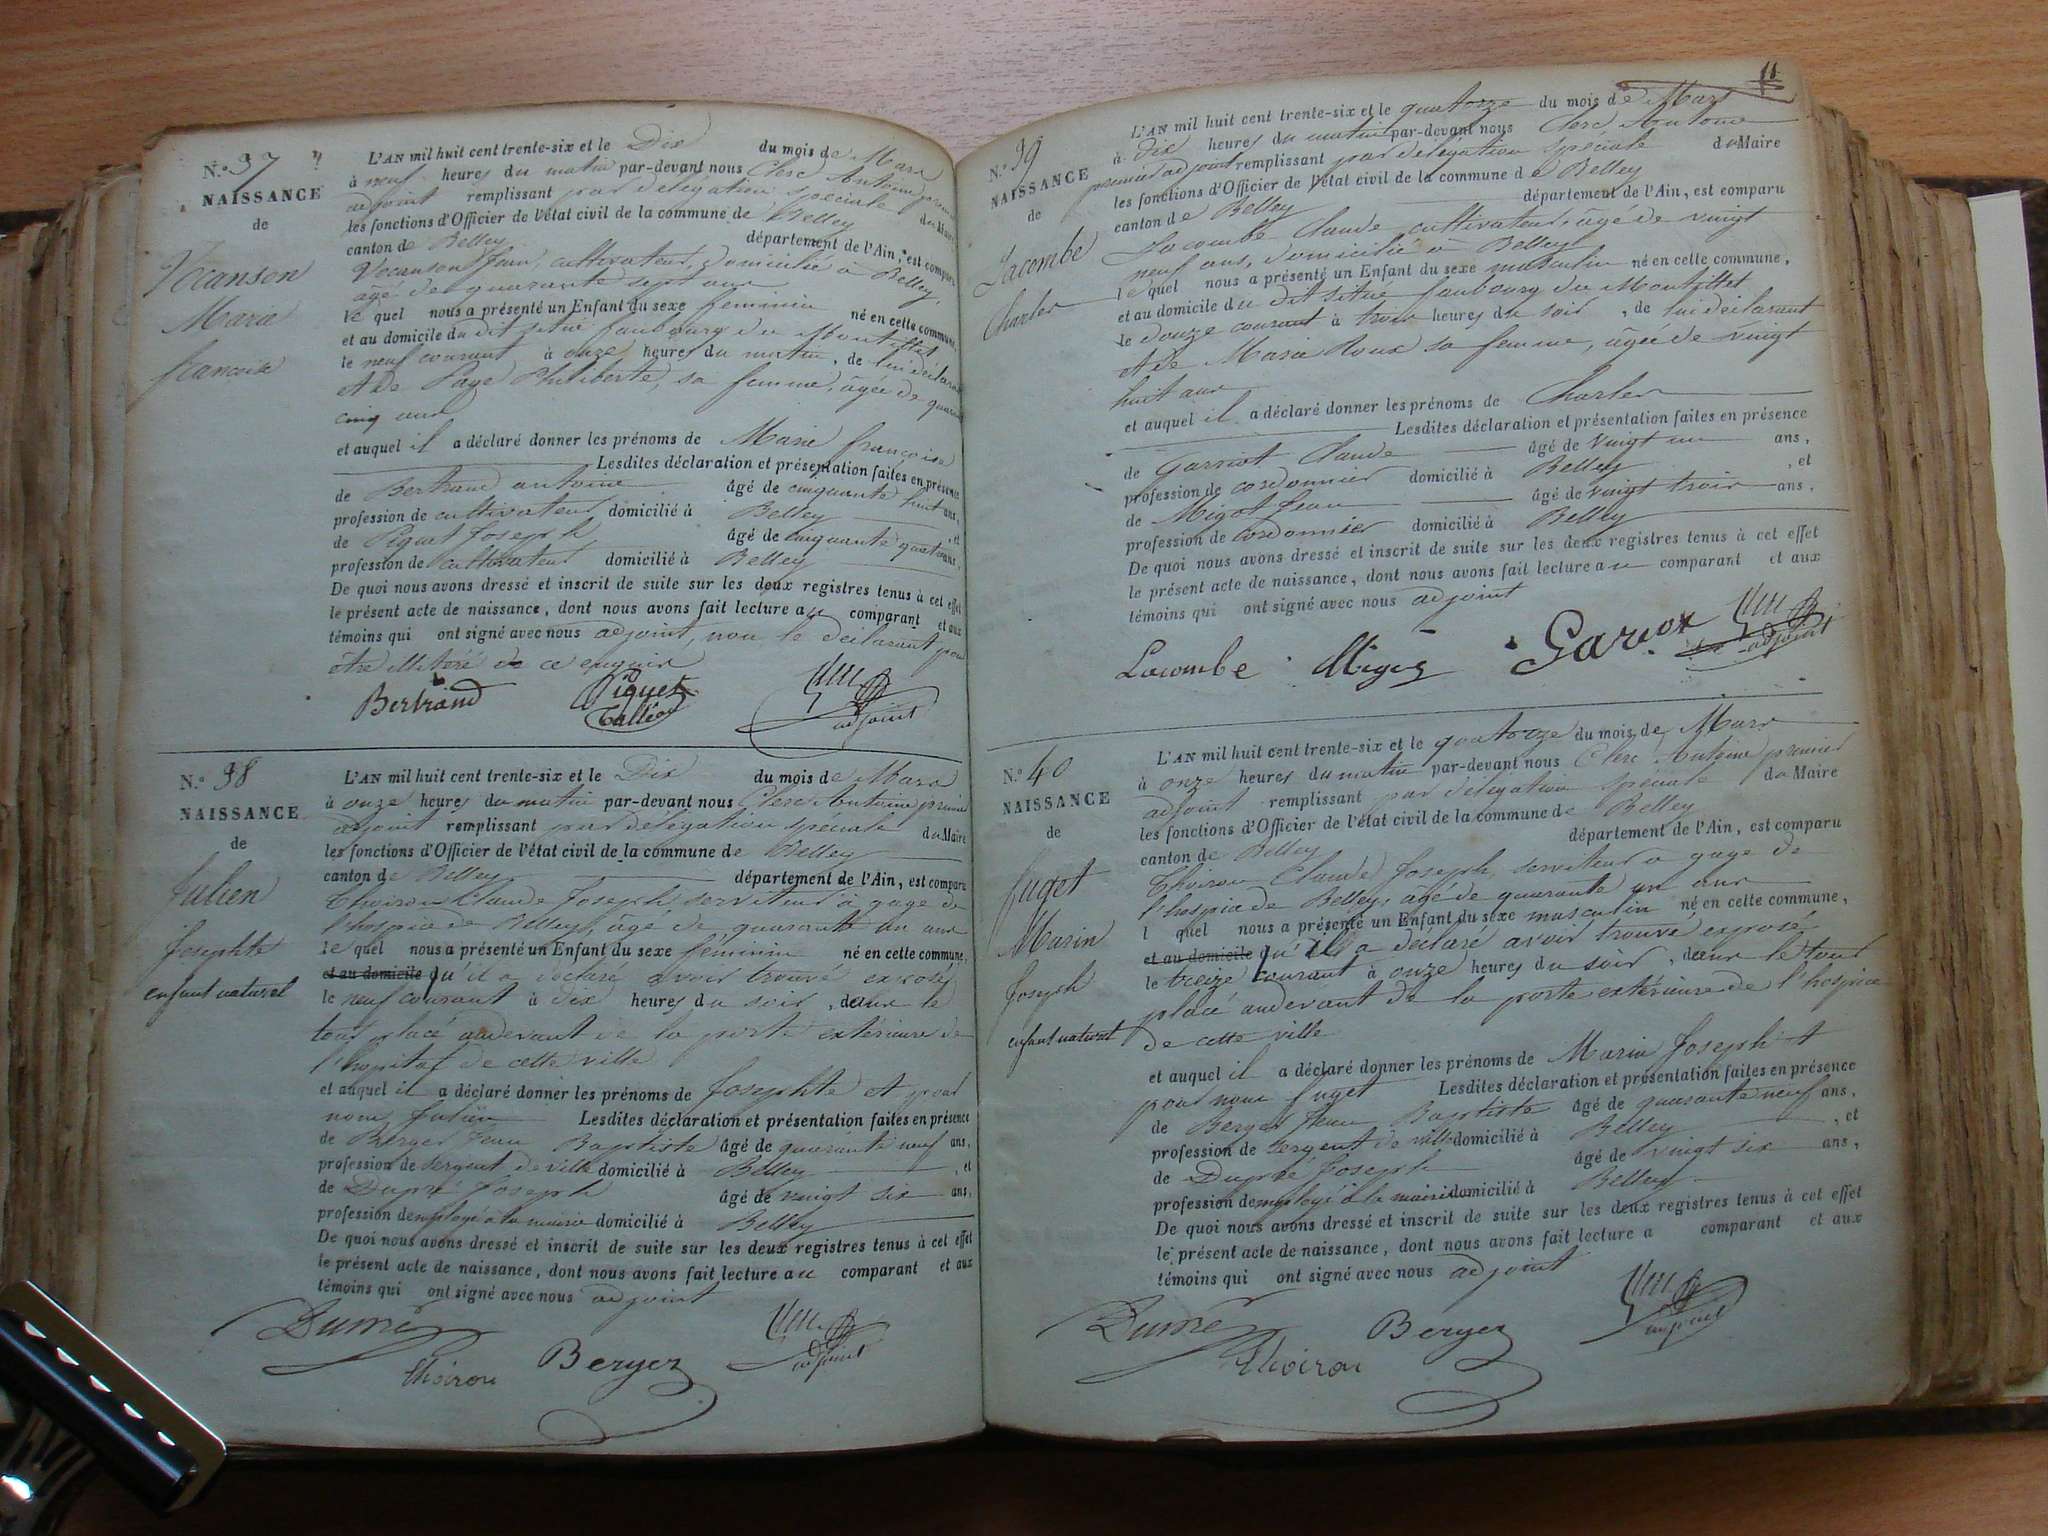 N.o 37
NAISSANCE
de
Vocanson
Marie
francoise
L'AN mil huit cent trente-six et le Dix du mois de Mars
à neuf heures du matin par-devant nous Clerc Antoine premier
adjoint remplissant par délégation spéciale du Maire
les fonctions d'Officier de l'état civil de la commune de Belley
canton de Belley département de l'Ain, est comparu
Vocanson Jean, cultivateur, domicilié à Belley,
âgé de quarante sept ans
le quel nous a présenté un Enfant du sexe feminin né en cette commune,
et au domicile du dit situé faubourg du Montillet
le neuf courant à onze heures du matin, de lui déclarant
et de Page Philiberte, sa femme, âgée de quarante
cinq ans
et auquel il a déclaré donner les prénoms de Marie françoise
Lesdites déclaration et présentation faites en présence
de Bertrand antoine âgé de cinquante huit ans,
profession de cultivateur domicilié à Belley, et
de Piquet Joseph âgé de cinquante quatre ans,
profession de cultivateur domicilié à Belley
De quoi nous avons dressé et inscrit de suite sur les deux registres tenus à cet effet
le présent acte de naissance, dont nous avons fait lecture au comparant et aux
témoins qui ont signé avec nous adjoint, non le déclarant pour
être illitéré de ce enquis
Bertrand Piquet
adjoint
N.o 38
NAISSANCE
de
Julien
Josephte
enfant naturel
L'AN mil huit cent trente-six et le Dix du mois de Mars
à onze heures du matin par-devant nous Clerc Antoine premier
adjoint remplissant par délégation spéciale du Maire
les fonctions d'Officier de l'état civil de la commune de Belley
canton de Belley département de l'Ain, est comparu
Thoiron Claude Joseph serviteur à gage de
l'hospice de Belley, âgé de quarante un ans
le quel nous a présenté un Enfant du sexe féminin né en cette commune,
et au domicile qu'il a déclaré avoir trouvé exposé
le neuf courant à dix heures du soir, dans le
tour placé audevant de la porte extérieure de
l'hopital de cette ville
et auquel il a déclaré donner les prénoms de Josephte et pour
nom Julien Lesdites déclaration et présentation faites en présence
de Berger Jean Baptiste âgé de quarante neuf ans,
profession de sergent de ville domicilié à Belley, et
de Dupré Joseph âgé de vingt six ans,
profession d'employé à la mairie domicilié à Belley
De quoi nous avons dressé et inscrit de suite sur les deux registres tenus à cet effet
le présent acte de naissance, dont nous avons fait lecture au comparant et aux
témoins qui ont signé avec nous adjoint
Dupré Thoiron Berger adjoint
11
N.o 39
NAISSANCE
de
Lacombe
Charles
L'AN mil huit cent trente-six et le quatorze du mois de Mars
à dix heures du matin par-devant nous Clerc Antoine
premier adjoint remplissant par délégation spéciale du Maire
les fonctions d'Officier de l'état civil de la commune de Belley
canton de Belley département de l'Ain, est comparu
Lacombe Claude cultivateur, âgé de vingt
neuf ans, domicilié à Belley
le quel nous a présenté un Enfant du sexe masculin né en cette commune,
et au domicile du dit situé faubourg du Montillet
le douze courant à trois heures du soir, de lui déclarant
et de Marie Roux sa femme, âgée de vingt
huit ans
et auquel il a déclaré donner les prénoms de Charles
Lesdites déclaration et présentation faites en présence
de Garriot Claude âgé de vingt un ans,
profession de cordonnier domicilié à Belley, et
de Migot Jean âgé de vingt trois ans,
profession de cordonnier domicilié à Belley
De quoi nous avons dressé et inscrit de suite sur les deux registres tenus à cet effet
le présent acte de naissance, dont nous avons fait lecture au comparant et aux
témoins qui ont signé avec nous adjoint
Lacombe adjoint
N.o 40
NAISSANCE
de
fuget
Marin
Joseph
enfant naturel
L'AN mil huit cent trente-six et le quatorze du mois de Mars
à onze heures du matin par-devant nous Clerc Antoine premier
adjoint remplissant par délégation spéciale du Maire
les fonctions d'Officier de l'état civil de la commune de Belley
canton de Belley département de l'Ain, est comparu
Thoiron Claude Joseph, serviteur à gage de
l'hospice de Belley, âgé de quarante un ans
l quel nous a présenté un Enfant du sexe masculin né en cette commune,
et au domicile qu'il a déclaré avoir trouvé exposé
le treize courant à onze heures du soir, dans le tour
placé audevant de la porte extérieure de l'hospice
de cette ville
et auquel il a déclaré donner les prénoms de Marin Joseph et
pour nom fuget Lesdites déclaration et présentation faites en présence
de Berger Jean Baptiste âgé de quarante neuf ans,
profession de sergent de ville domicilié à Belley, et
de Dupré Joseph âgé de vingt six ans,
profession d'employé à la mairie domicilié à Belley
De quoi nous avons dressé et inscrit de suite sur les deux registres tenus à cet effet
le présent acte de naissance, dont nous avons fait lecture a comparant et aux
témoins qui ont signé avec nous adjoint
Dupré Thoiron Berger adjoint